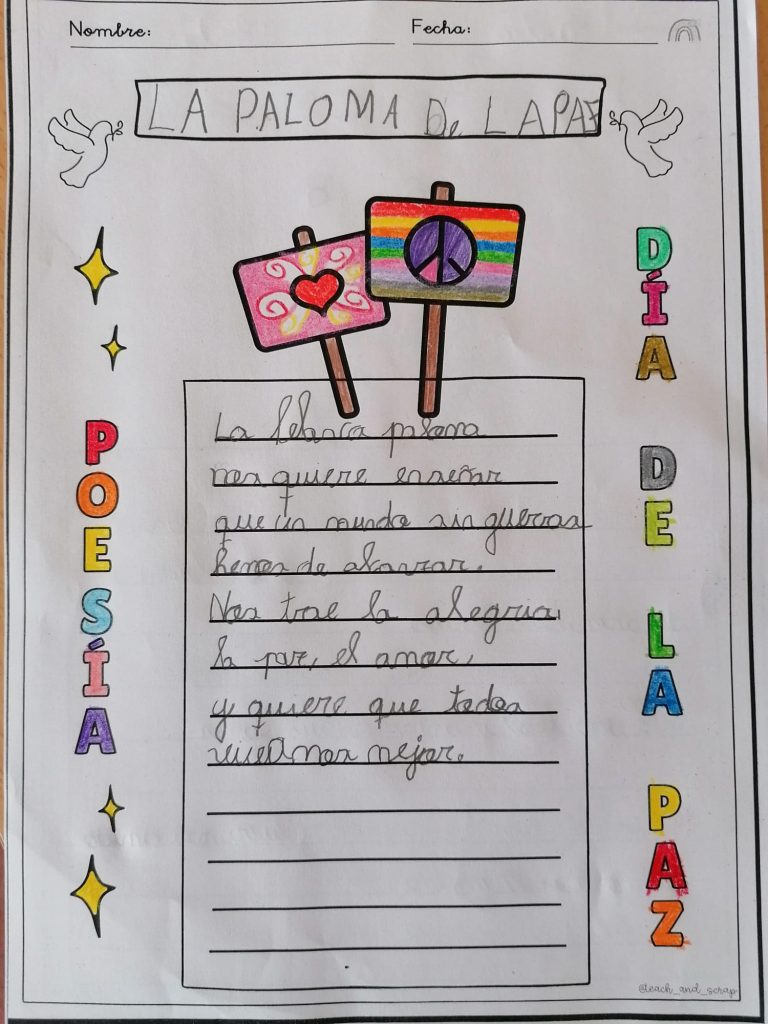 Nombre:
Fecha:
LA PALOMA De LA PAZ
POESÍA
DÍA DE LA PAZ
La blanca paloma
nos quiere enseñar
que un mundo sin guerras
hemos de alcanzar.
Nos trae la alegria,
la paz, el amor,
y quiere que todos
vivamos mejor.
@teach_and_scrap